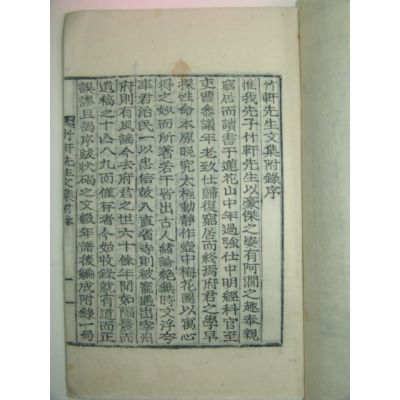 竹軒先生文集附錄序
惟我先子竹軒先生以豪傑之姿有阿澗之趣奉親
窮居而讀書于蓮花山中年過強仕中明經科官至
吏曹參議年老致仕歸復窮居而終焉府君之學早
探性命本原晩究太極動靜作壺中梅花圖以寓心
得之妙而所著若干皆出古人緖論絶無時文浮夸
事君治民一以忠信故入直省寺則被寵遇出宰州
府則有風謠今去府君之世六十餘年聞如隔晨而
遺稿之十亡八九而僅存者今始收錄就有道而正
誤謬且謁序跋狀碣之文綴年譜後編成附錄一局
竹軒先生文集附錄
一